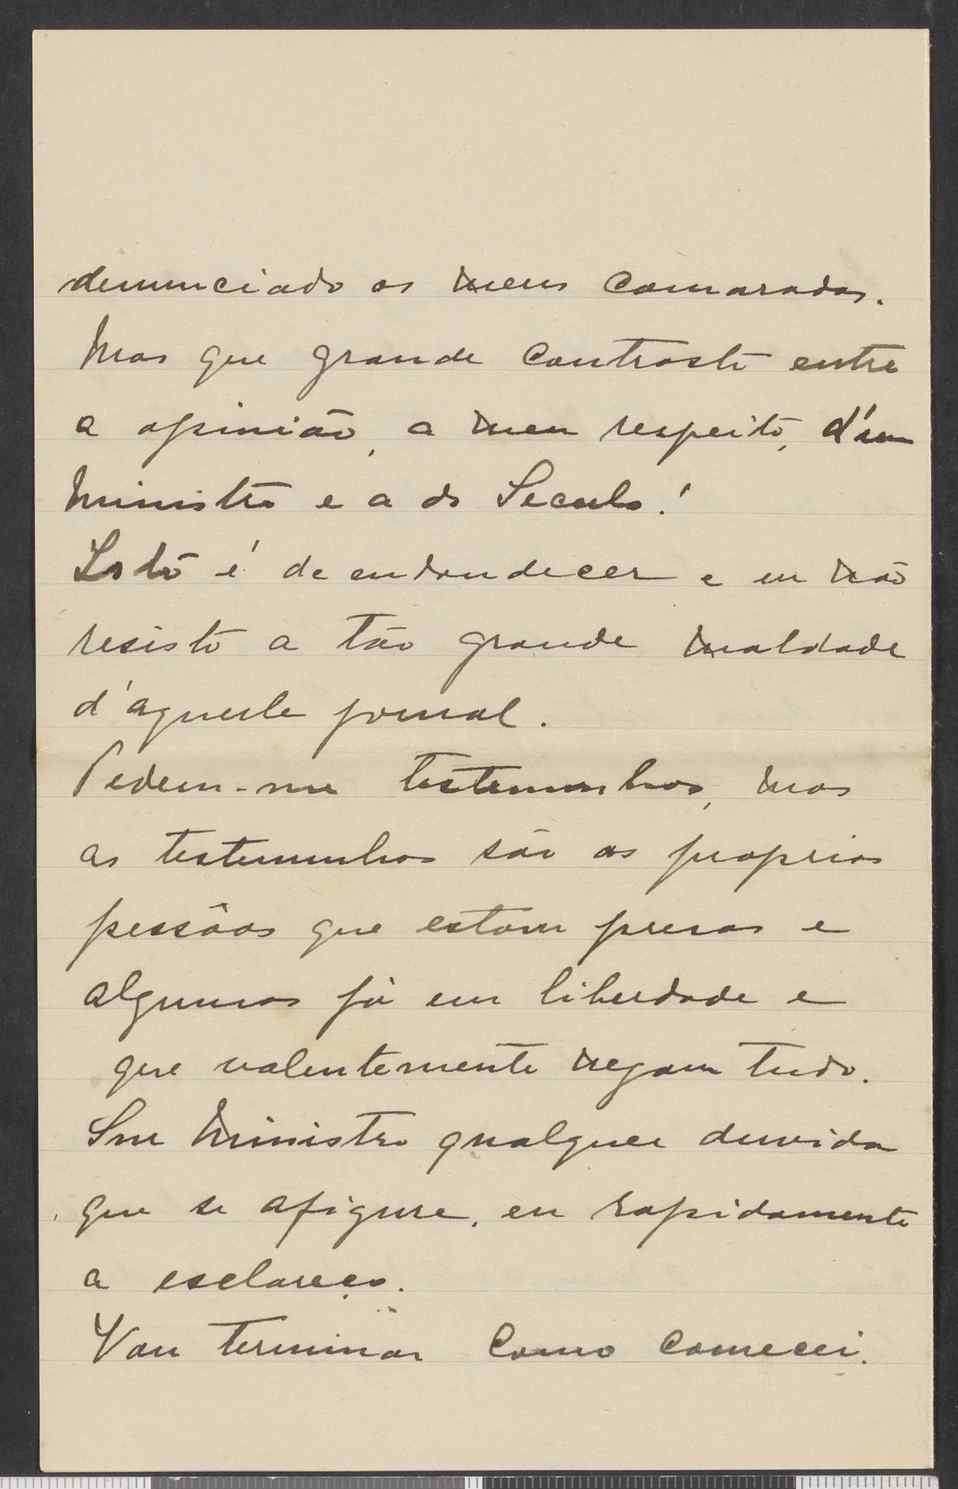 denunciado os meus camaradas.
Mas que grande contraste entre
a opinião, a meu respeito, d'um
Ministro e a do Seculo!
Isto é de endoudecer e eu não
resisto a tão grande maldade
d'aquele jornal.
Pedem-me testemunhas, mas
as testemunhas são as proprias
pessôas que estam presas e
algumas já em liberdade e
que valentemente negam tudo.
Snr Ministro qualquer duvida
que se afigure, eu rapidamente
a esclareço.
Vou terminar como comecei.